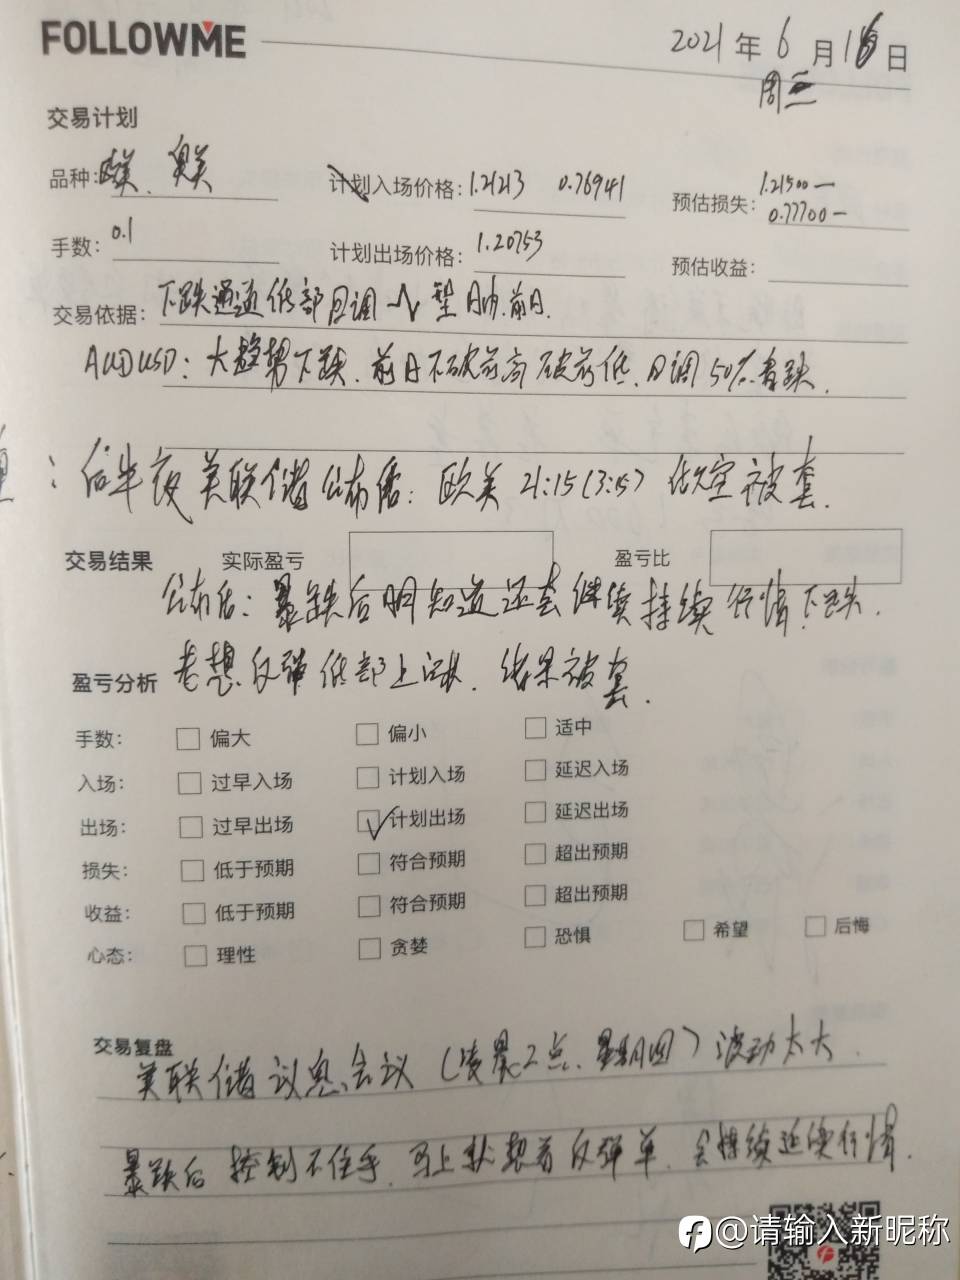 FOLLOWME
2021年6月16日
周三
交易计划
品种: 欧美、奥美 计划入场价格: 1.21213 0.76941 预估损失: 1.21500—
0.77700—
手数: 0.1 计划出场价格: 1.20753 预估收益:
交易依据: 下跌通道低部回调 型 前日.
AUDUSD: 大趋势下跌. 前日不破前高破前低. 回调50%看跌.
: 后半夜美联储公布后: 欧美 21:15 做空被套.
交易结果 实际盈亏 盈亏比
公布后: 暴跌后明知道还会继续持续行情下跌.
盈亏分析 老想反弹低部上 . 结果被套.
手数: 偏大 偏小 适中
入场: 过早入场 计划入场 延迟入场
出场: 过早出场 ✓计划出场 延迟出场
损失: 低于预期 符合预期 超出预期
收益: 低于预期 符合预期 超出预期
心态: 理性 贪婪 恐惧 希望 后悔
交易复盘
美联储议息会议(凌晨2点、星期四)波动太大.
暴跌后控制不住手. 马上就想着反弹单. 会持续延续行情.
@请输入新昵称